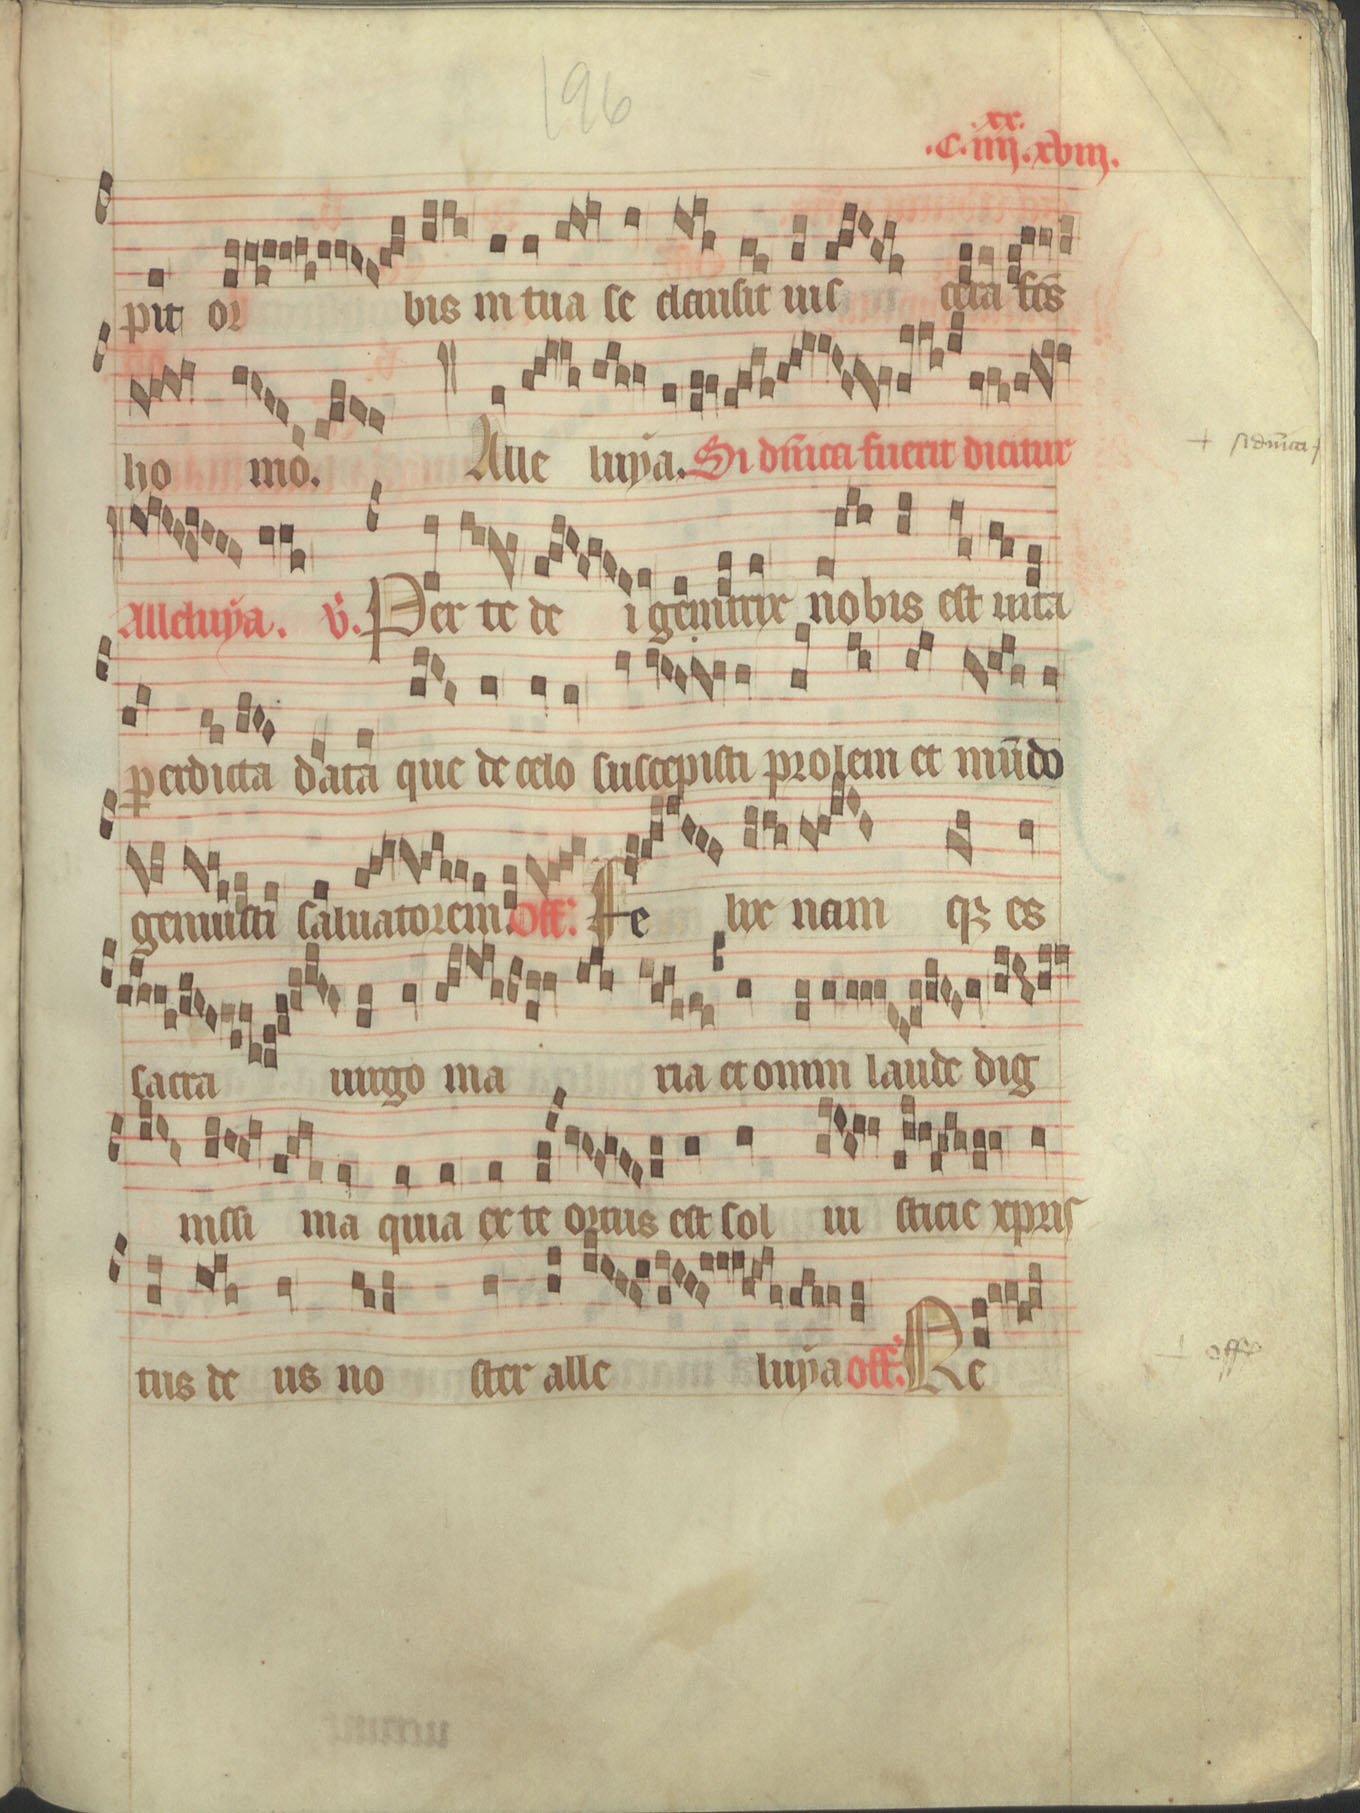 196
xx.
.C. iiij. xviij.
pit or bis in tua se clausit uis cera fc̄s
ho mo. Alle luẏa. Si dn̄ica fuerit dicitur
+ si dn̄ica
Alleluẏa. v̇. Per te de i genitrix nobis est uita
perdicta data que de celo suscepisti prolem et mūdo
genuisti saluatorem. Off. Fe lix nam qꝫ es
sacra uirgo ma ria et omni laude dig
nissi ma quia ex te ortus est sol iu sticie xpris
tus de us no ster alle luẏa off. Re
+ offr